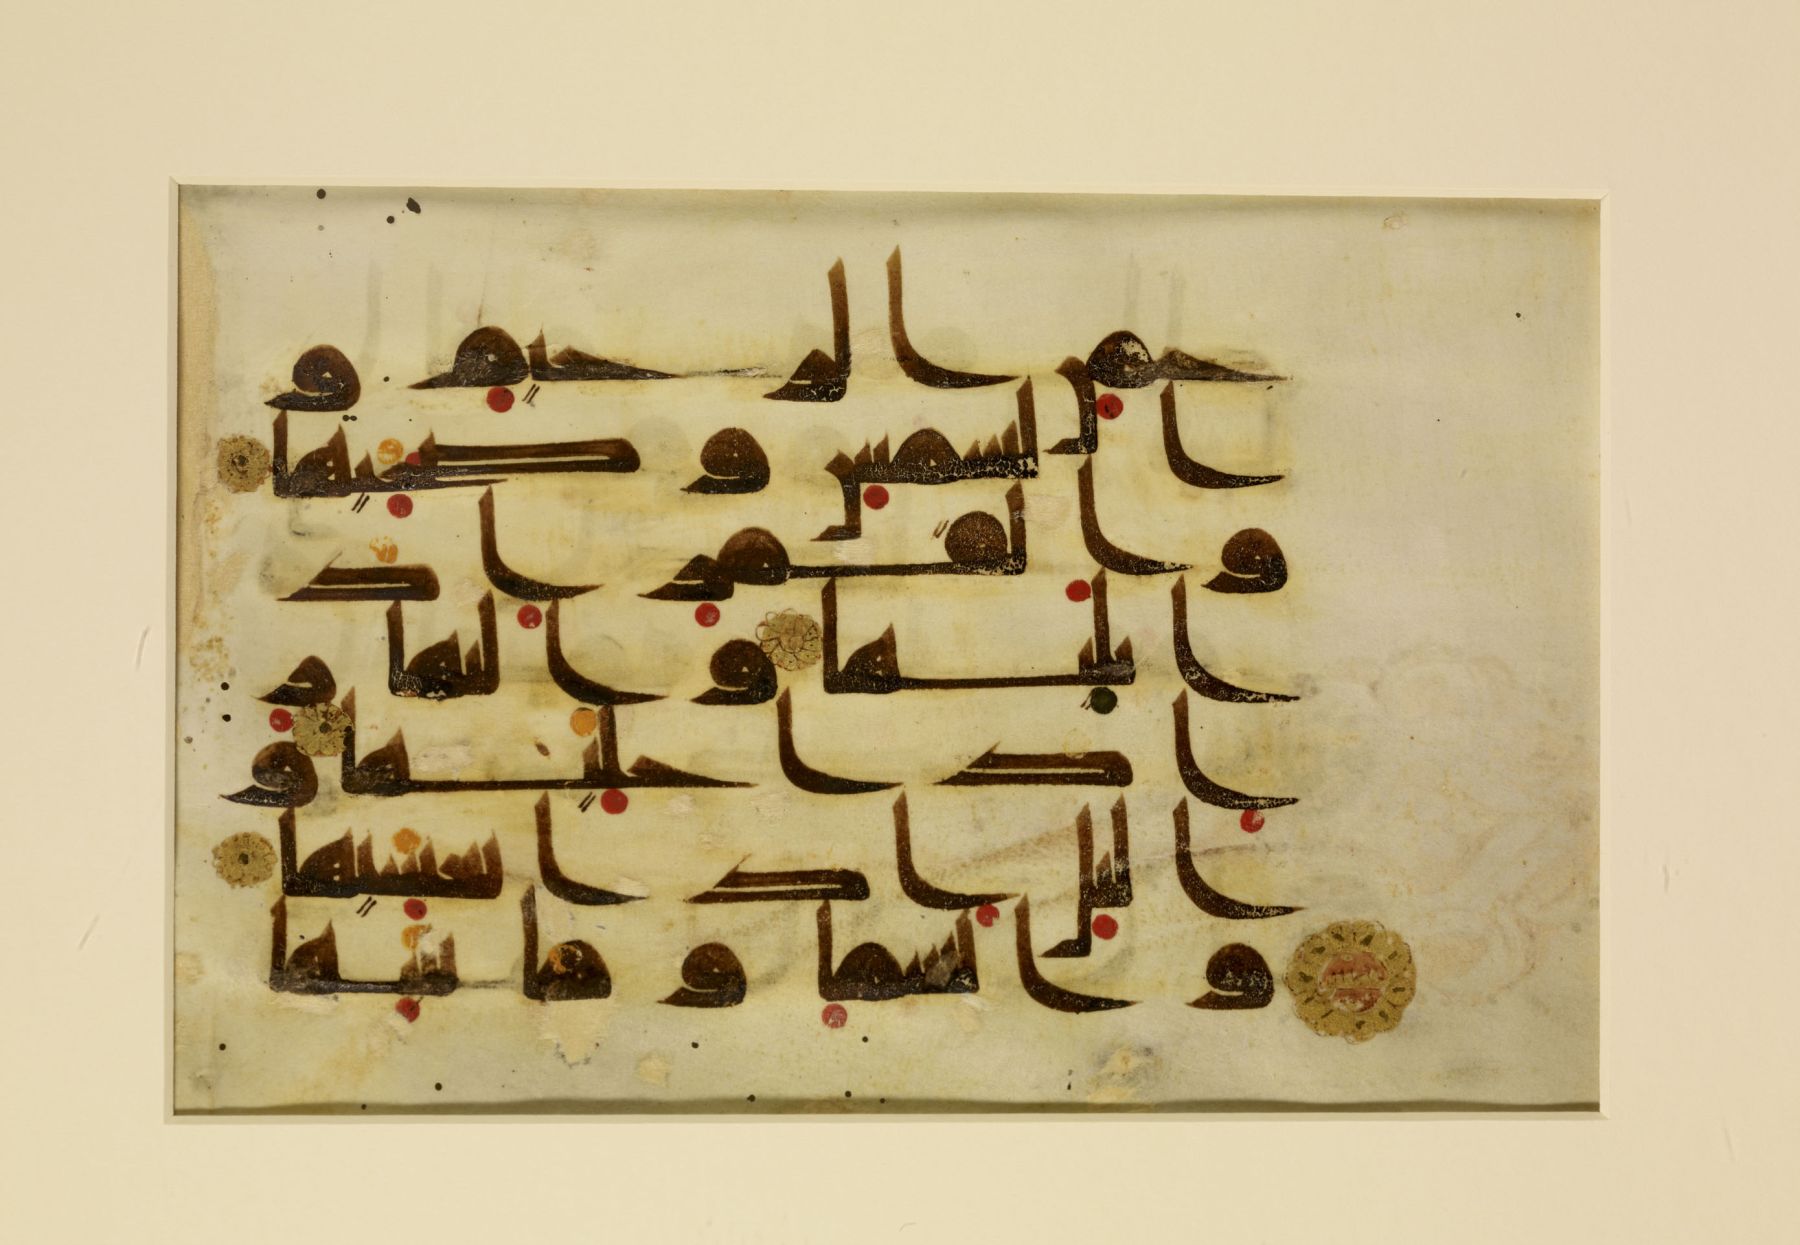 حمن الرحيم و
الشمس وضحيها
والقمر اذ
ا تليها والنهار
اذا جليها و
اليل اذا يغشيها
والسما وما بنيها